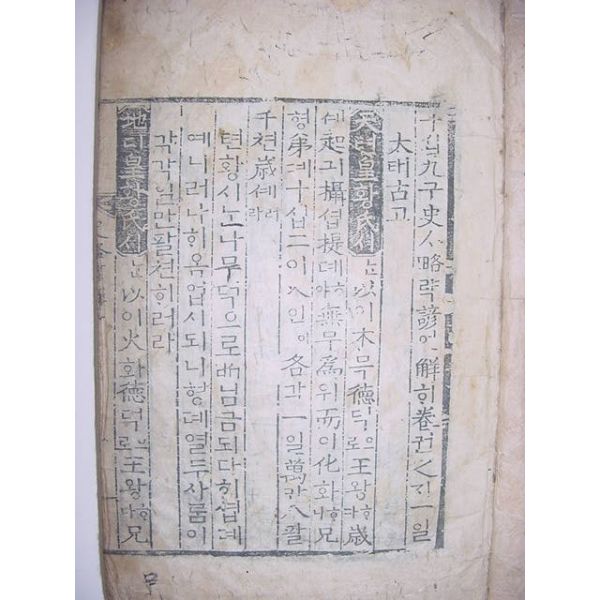 十십九구史ᄉᆞ略략諺언解ᄒᆡ卷권之지一일
太태古고
天텬皇황氏시ᄂᆞᆫ以이木목德덕으로王왕ᄒᆞ다歲
셰起긔攝셥提뎨ᄒᆞ야無무爲위而이化화ᄒᆞ니兄
형弟뎨十십二이人인이各각一일萬만八팔
千쳔歲셰러라
텬황시ᄂᆞᆫ나무덕으로ᄡᅥ님금되다ᄒᆡ셥뎨
예니러나ᄒᆞ옴업시되니형뎨열두사ᄅᆞᆷ이
각각일만팔쳔ᄒᆡ러라
地디皇황氏시ᄂᆞᆫ以이火화德덕으로王왕ᄒᆞ다兄